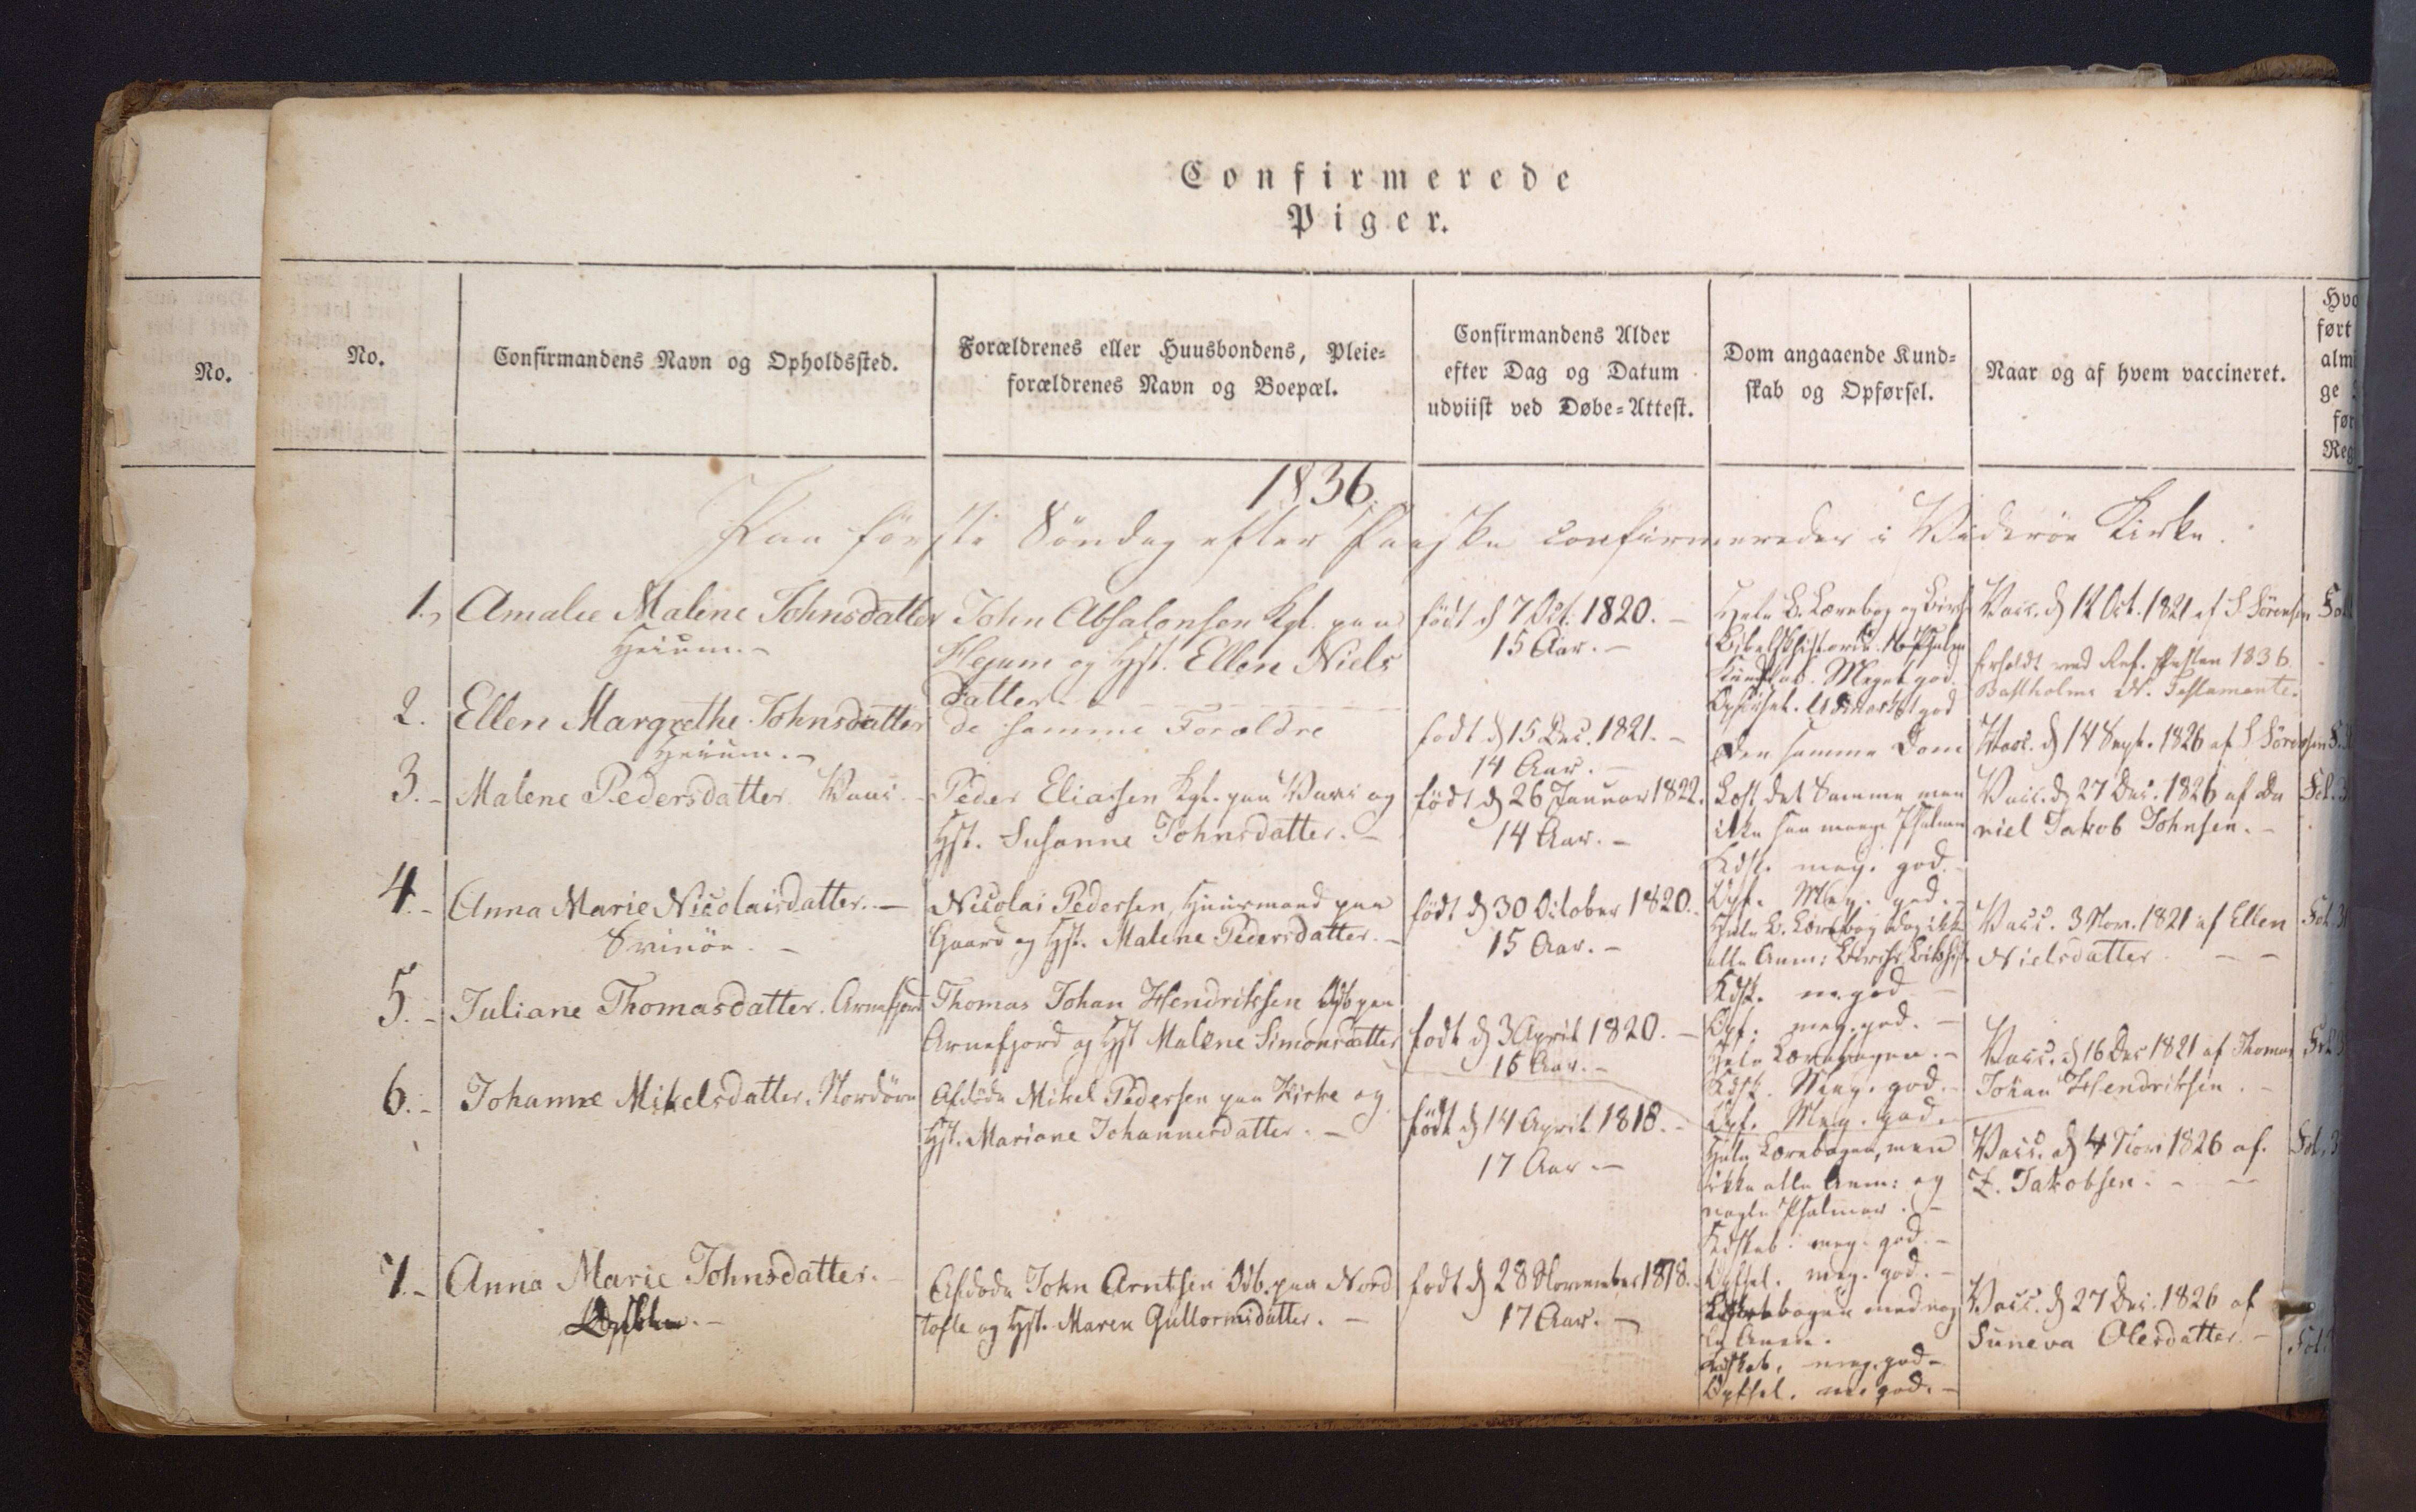 Confirmerede
Piger.
No.
No.
Confirmandens Navn og Opholdssted.
Forældrenes eller Huusbondens, Pleie=
forældrenes Navn og Boepæl.
Confirmandens Alder
efter Dag og Datum
udviist ved Døbe=Attest.
Dom angaaende Kund=
skab og Opførsel.
Naar og af hvem vaccineret.
Hvo
ført
almi
ge
før
Reg
1836.
Paa første Söndag efter Paaske confirmereder i Viderøe Kirke.
1.
Amalie Malene Johnsdatter
Heium.-
John Absalonsen Kgl. paa
Hejum og Hst. Ellen Niels
Datter.
født d 7 Oct. 1820. -
15 Aar. -
Hele B. Lærebog og Birchs
Bibelshistorie. 16 Psalmer
Kundskab. Meget god.
Opførsel. Udmærket god
Vacc. d 12 Oct. 1821 af S Sörensen
forholdt ved Ref. Pesten 1836.
Bastholms N. Testamente.
2.
Ellen Margrethe Johnsdatter
Heium. -
de samme Forældre
født d 15 Dec. 1821. -
14 Aar. -
Den samme Dom
Vacc. d 14 Sept. 1826 af S Sörensen
3. -
Malene Pedersdatter Vaai. -
Peder Eliassen Kgl. paa Vaai og
Hst. Susanne Johnsdatter. -
født d 26 Januar 1822.
14 Aar. -
Læst det Samme men
ikke saa mange Psalmer
Kdsk. meg. god. -
Opf. Meg. god. -
Vacc. d 27 Dec. 1826 af Da
niel Jakob Johnsen. -
4. -
Anna Marie Nicolaisdatter. -
Svinöe. -
Nicolai Pedersen, Huusmand paa
Gaard og Hst. Malene Pedersdatter. -
født d 30 October 1820. -
15 Aar. -
Hele B. Lærebog dog ikke
alle Anm: Birchs Bibhist.
Kdsk. m. god -
Opf. meg. god. -
Vacc. 3 Nov. 1821 af Ellen
Nielsdatter. - -
5. -
Juliane Thomasdatter. Arnefjord
Thomas Johan Hendriksen Odb paa
Arnefjord og Hst Malene Simonsdatter
født d 3 April 1820. -
16 Aar. -
Hele Lærebogen. -
Kdsk. Meg. god. -
Opf. Meg. god.
Vacc. d 16 Dec 1821 af Thomas
Johan Hendriksen. -
6. -
Johanne Mikelsdatter. Nordöre
Afdöde Mikel Pedersen paa Kirke og
Hst. Mariane Johannesdatter. -
født d 14 April 1818. -
17 Aar -
Hele Lærebogen, men
ikke alle Anm: og
nogle Psalmer. -
Kdskab: meg. god. -
Opfsel. meg. god. -
Vacc. d 4 Nov 1826 af.
Z. Jakobsen. - -
7. -
Anna Marie Johnsdatter. -
Afdøde John Arntsen Odb. paa Nord
tofte og Hst. Maren Guttormsdatter. -
født d 28 November 1818. -
17 Aar. -
bogen med nog
le Anm.
Kdskab. meg. god -
Opfsel. m. god. -
Vacc. d 27 Dec. 1826 af
Suneva Olesdatter. -